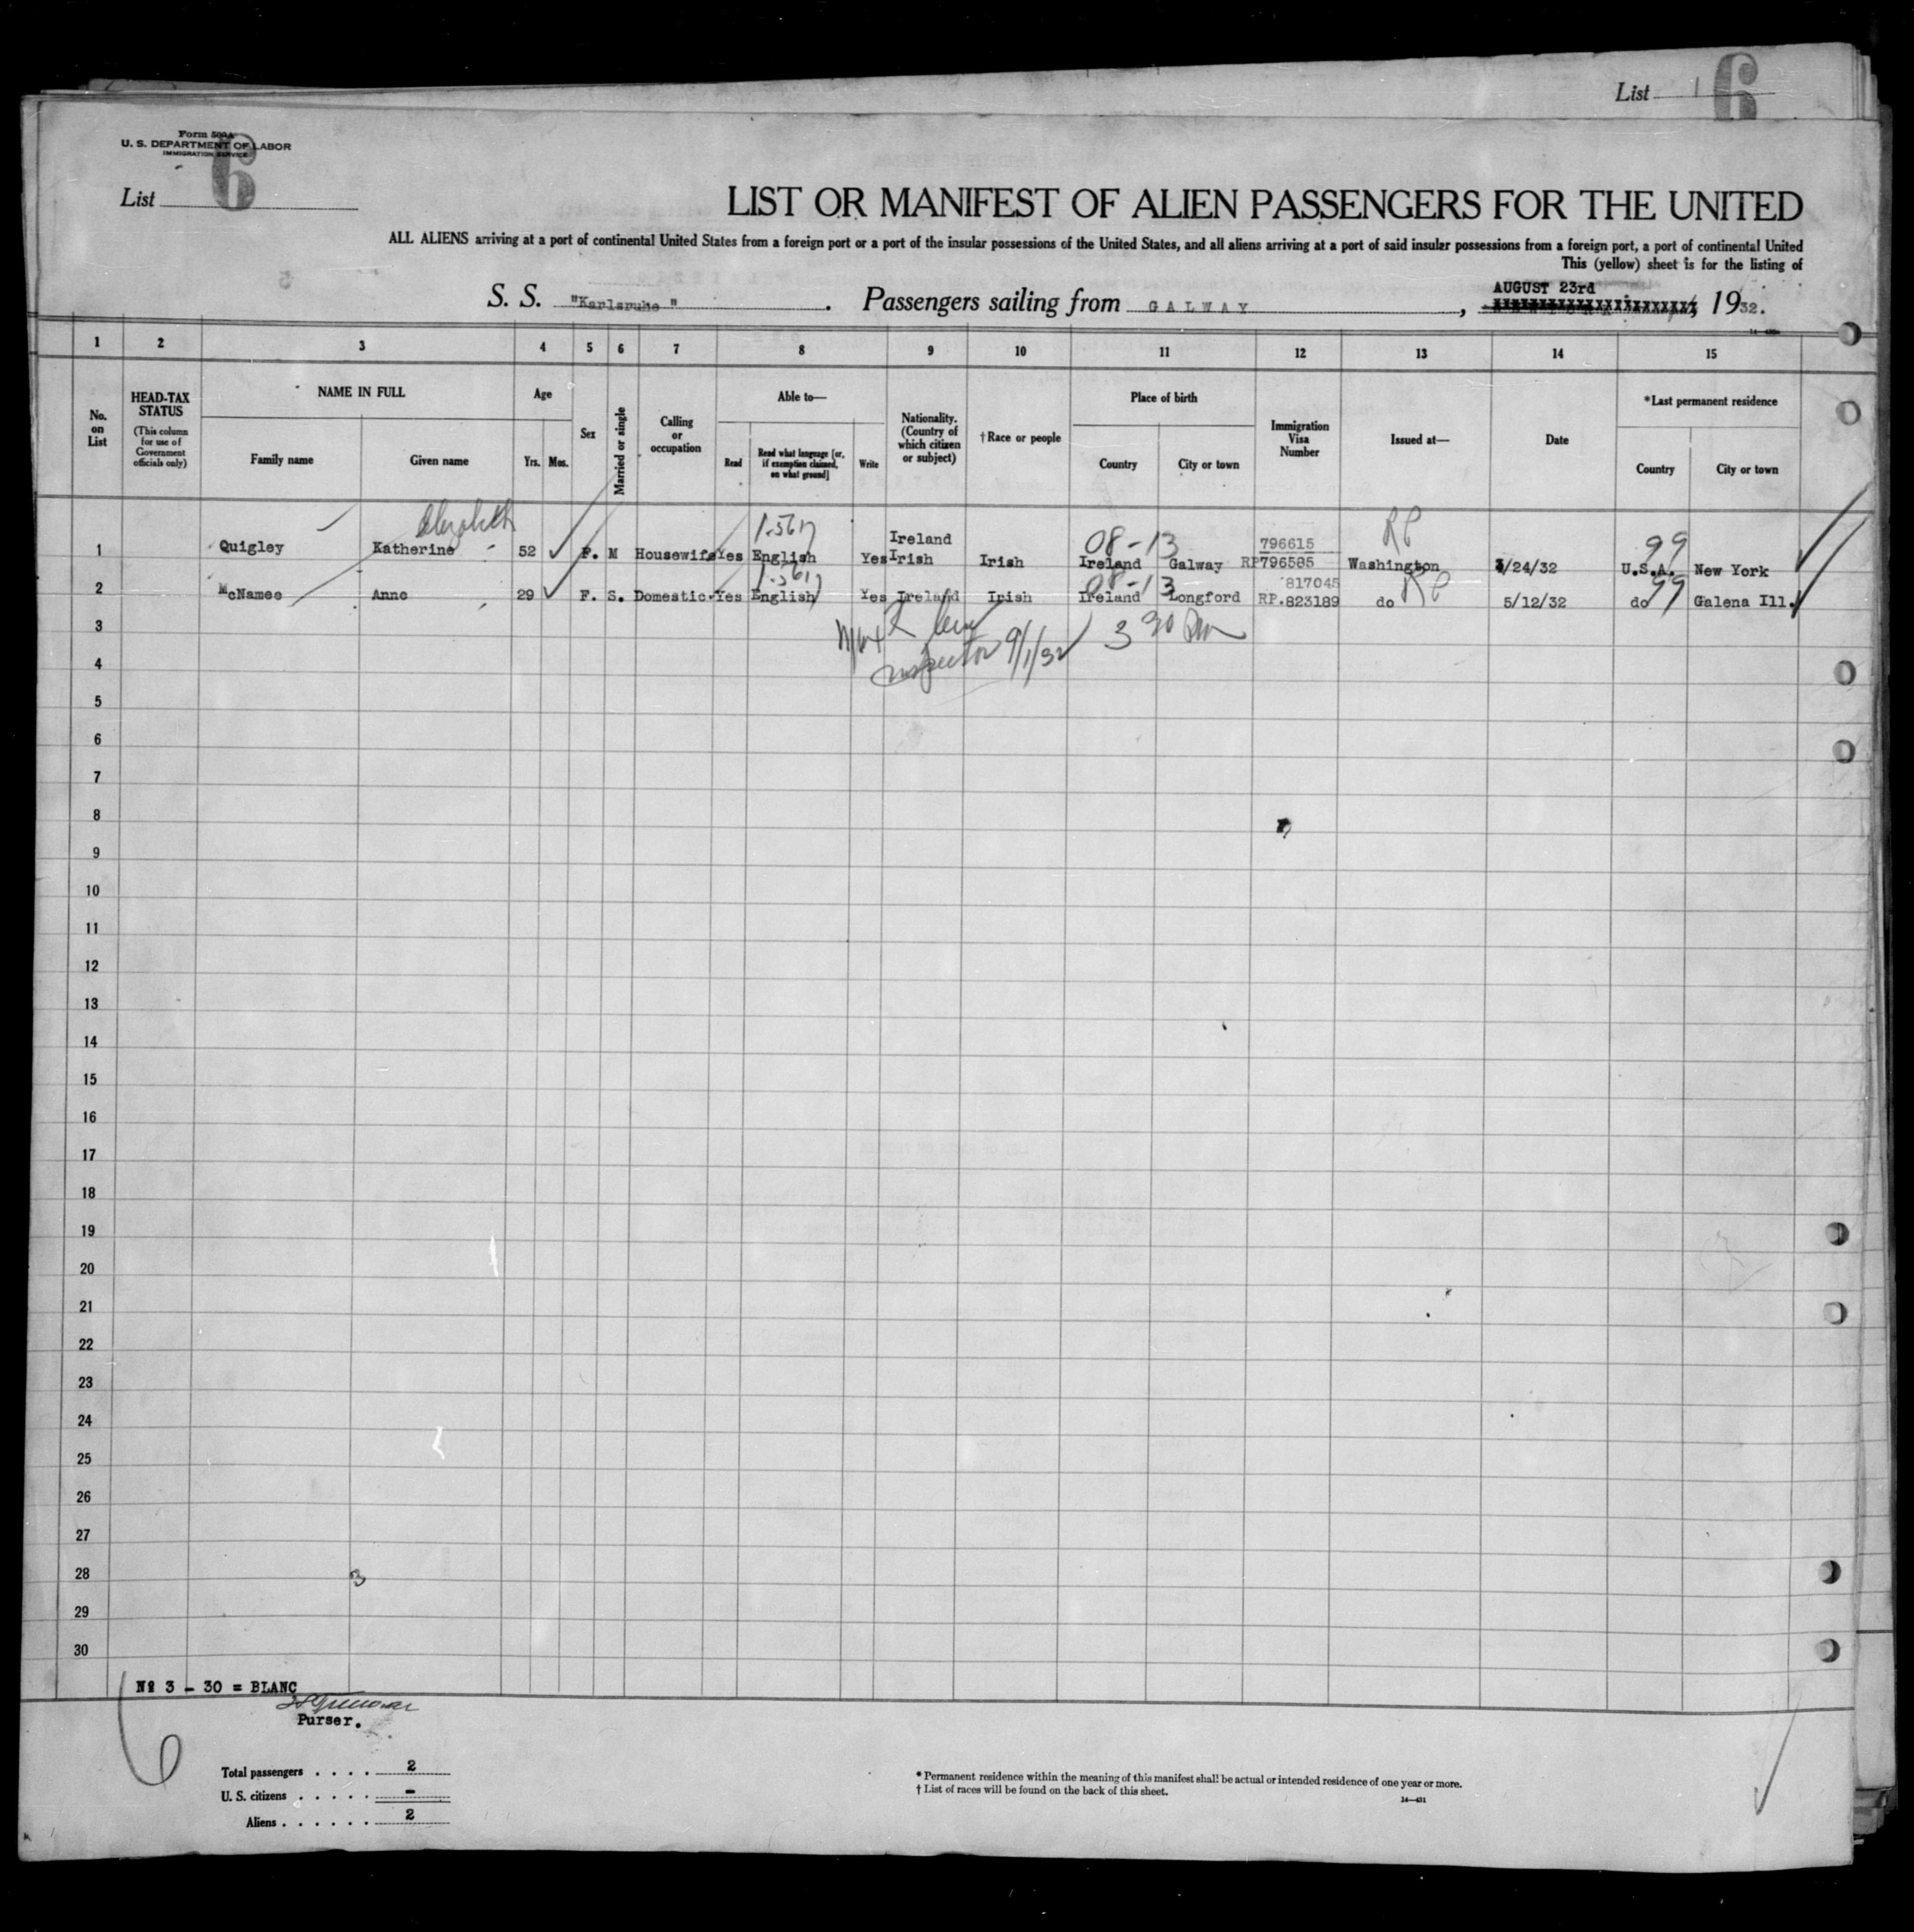 List 1 6
Form 500A
U. S. DEPARTMENT OF LABOR
IMMIGRATION SERVICE
List 6
LIST OR MANIFEST OF ALIEN PASSENGERS FOR THE UNITED
ALL ALIENS arriving at a port of continental United States from a foreign port or a port of the insular possessions of the United States, and all aliens arriving at a port of said insular possessions from a foreign port, a port of continental United
This (yellow) sheet is for the listing of
S. S. "Karlsruhe". Passengers sailing from GALWAY, AUGUST 23rd, 1932.
1 2 3 4 5 6 7 8 9 10 11 12 13 14 15
No. on List
HEAD-TAX STATUS (This column for use of Government officials only)
NAME IN FULL
Family name Given name
Age
Yrs. Mos.
Sex
Married or single
Calling or occupation
Able to—
Read Read what language [or, if exemption claimed, on what ground] Write
Nationality. (Country of which citizen or subject)
†Race or people
Place of birth
Country City or town
Immigration Visa Number
Issued at—
Date
*Last permanent residence
Country City or town
Elizabeth
Ireland 08-13 796615 RP 99
1 Quigley Katherine 52 F. M Housewife Yes English Yes Irish Irish Ireland Galway RP796585 Washington /24/32 U.S.A. New York
08-13 817045 RP 99
2 McNamee Anne 29 F. S. Domestic Yes English Yes Ireland Irish Ireland Longford RP.823189 do 5/12/32 do Galena Ill.
3 3 30 Pm
4 Inspector 9/1/32
5
6
7
8
9
10
11
12
13
14
15
16
17
18
19
20
21
22
23
24
25
26
27
28 3
29
30
№ 3 - 30 = BLANC
Purser.
6
Total passengers . . . . 2
U. S. citizens . . . . . -
Aliens . . . . . . 2
* Permanent residence within the meaning of this manifest shall be actual or intended residence of one year or more.
† List of races will be found on the back of this sheet.
14—431